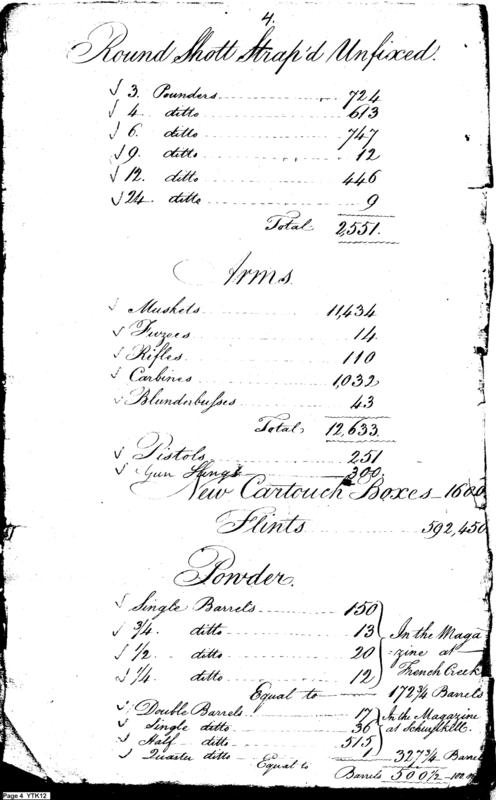 4.
Round Shott Strap'd Unfixed.
√ 3. Pounders 724
√ 4. ditto 613
√ 6. ditto 747
√ 9. ditto 12
√ 12. ditto 446
√ 24. ditto 9
Total 2,551.
Arms
√ Muskets 11,434
√ Fuzees 14
√ Rifles 110
√ Carbines 1,032
√ Blunderbusses 43
Total 12,633.
√ Pistols 251
√ Gun Slings 300
New Cartouch Boxes 1600
Flints 592,450
Powder.
√ Single Barrels 150
√ 3/4 ditto 13 In the Maga
√ 1/2 ditto 20 =zine at
√ 1/4 ditto 12 French Creek
Equal to 172 3/4 Barrels
√ Double Barrels 17 In the Magazine
√ Single ditto 36 at Schuylkill.
√ Half ditto 515
√ Quarter ditto 1
Equal to 327 3/4 Barrels
Barrels 500 1/2
Page 4 YTK12